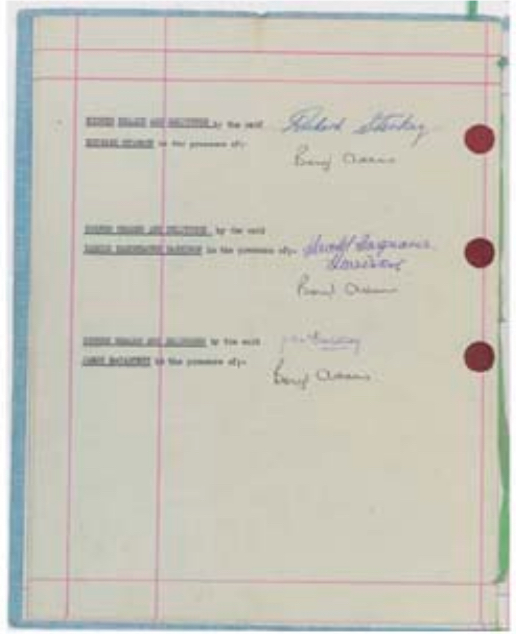 SIGNED SEALED AND DELIVERED by the said
Richard Starkey
RICHARD STARKEY in the presence of:-
Beryl Adams
SIGNED SEALED AND DELIVERED by the said
HAROLD HARGREAVES HARRISON in the presence of:-
Harold Hargreaves
Harrison
Beryl Adams
SIGNED SEALED AND DELIVERED by the said
JAMES McCARTNEY in the presence of:-
Beryl Adams